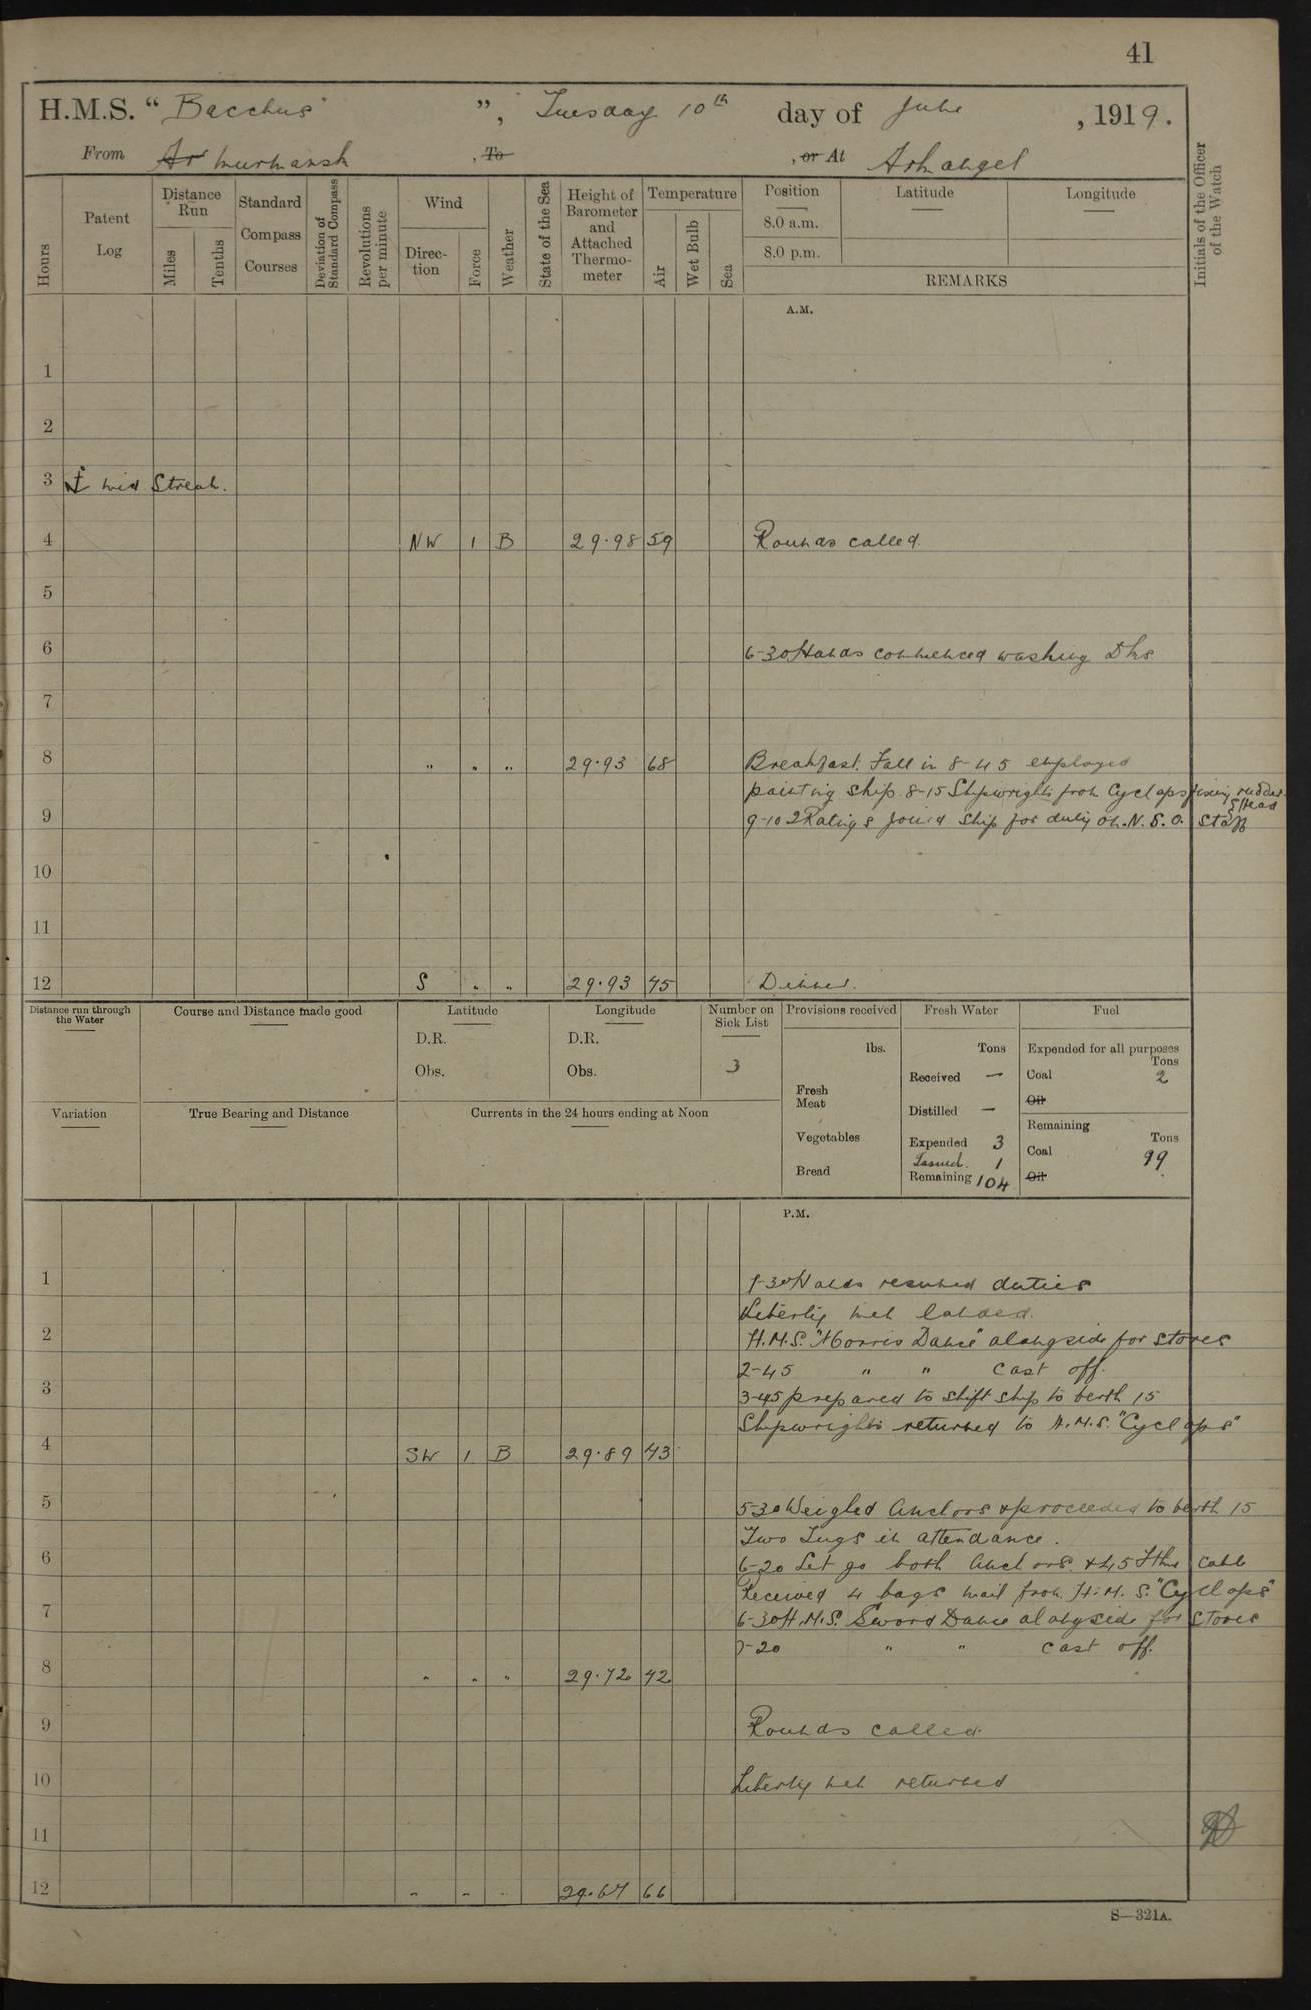 41
H.M.S. “ Bacchus ”, Tuesday 10th day of June , 1919.
From At Murmansk , To , or At Arkangel
Hours
Patent Log
Distance Run
Miles
Tenths
Standard Compass Courses
Deviation of Standard Compass
Revolutions per minute
Wind
Direction
Force
Weather
State of the Sea
Height of Barometer and Attached Thermometer
Temperature
Air
Wet Bulb
Sea
Position
8.0 a.m.
8.0 p.m.
Latitude
Longitude
REMARKS
Initials of the Officer of the Watch
A.M.
1
2
3 mid Stream.
4 NW 1 B 29.98 59 Rounds called.
5
6 6-30 Hands commenced washing Dks
7
8 " " " 29.93 68 Breakfast. Fall in 8-45 employed
painting ship. 8-15 Shipwrights from Cyclops fixing rudder head
9 9-10 2 Ratings joined ship for duty on N.S.O. Staff
10
11
12 S " " 29.93 45 Dinner.
Distance run through the Water
Course and Distance made good
Latitude
D.R.
Obs.
Longitude
D.R.
Obs.
Number on Sick List
3
Provisions received
lbs.
Fresh Meat
Vegetables
Bread
Fresh Water
Tons
Received —
Distilled —
Expended 3
Issued. 1
Remaining 104
Fuel
Expended for all purposes
Tons
Coal 2
Oil
Remaining
Tons
Coal 99
Oil
Variation
True Bearing and Distance
Currents in the 24 hours ending at Noon
P.M.
1 1-30 Hands resumed duties
Liberty men landed.
2 H.M.S. "Morris Dance" alongside for stores
2-45 " " cast off.
3 3-45 prepared to shift ship to berth 15
Shipwrights returned to H.M.S. "Cyclops"
4 SW 1 B 29.89 43
5 5-30 Weighed Anchors & proceeded to berth 15
Two Tugs in attendance.
6 6-20 Let go both Anchors. & 45 Fthms cable
Received 4 bags mail from H.M.S. "Cyclops"
7 6-30 H.M.S. Sword Dance alongside for stores
7-20 " " cast off.
8 " " " 29.72 42
9 Rounds called
10 Liberty men returned
11
12 " " " 29.67 66
S—321A.